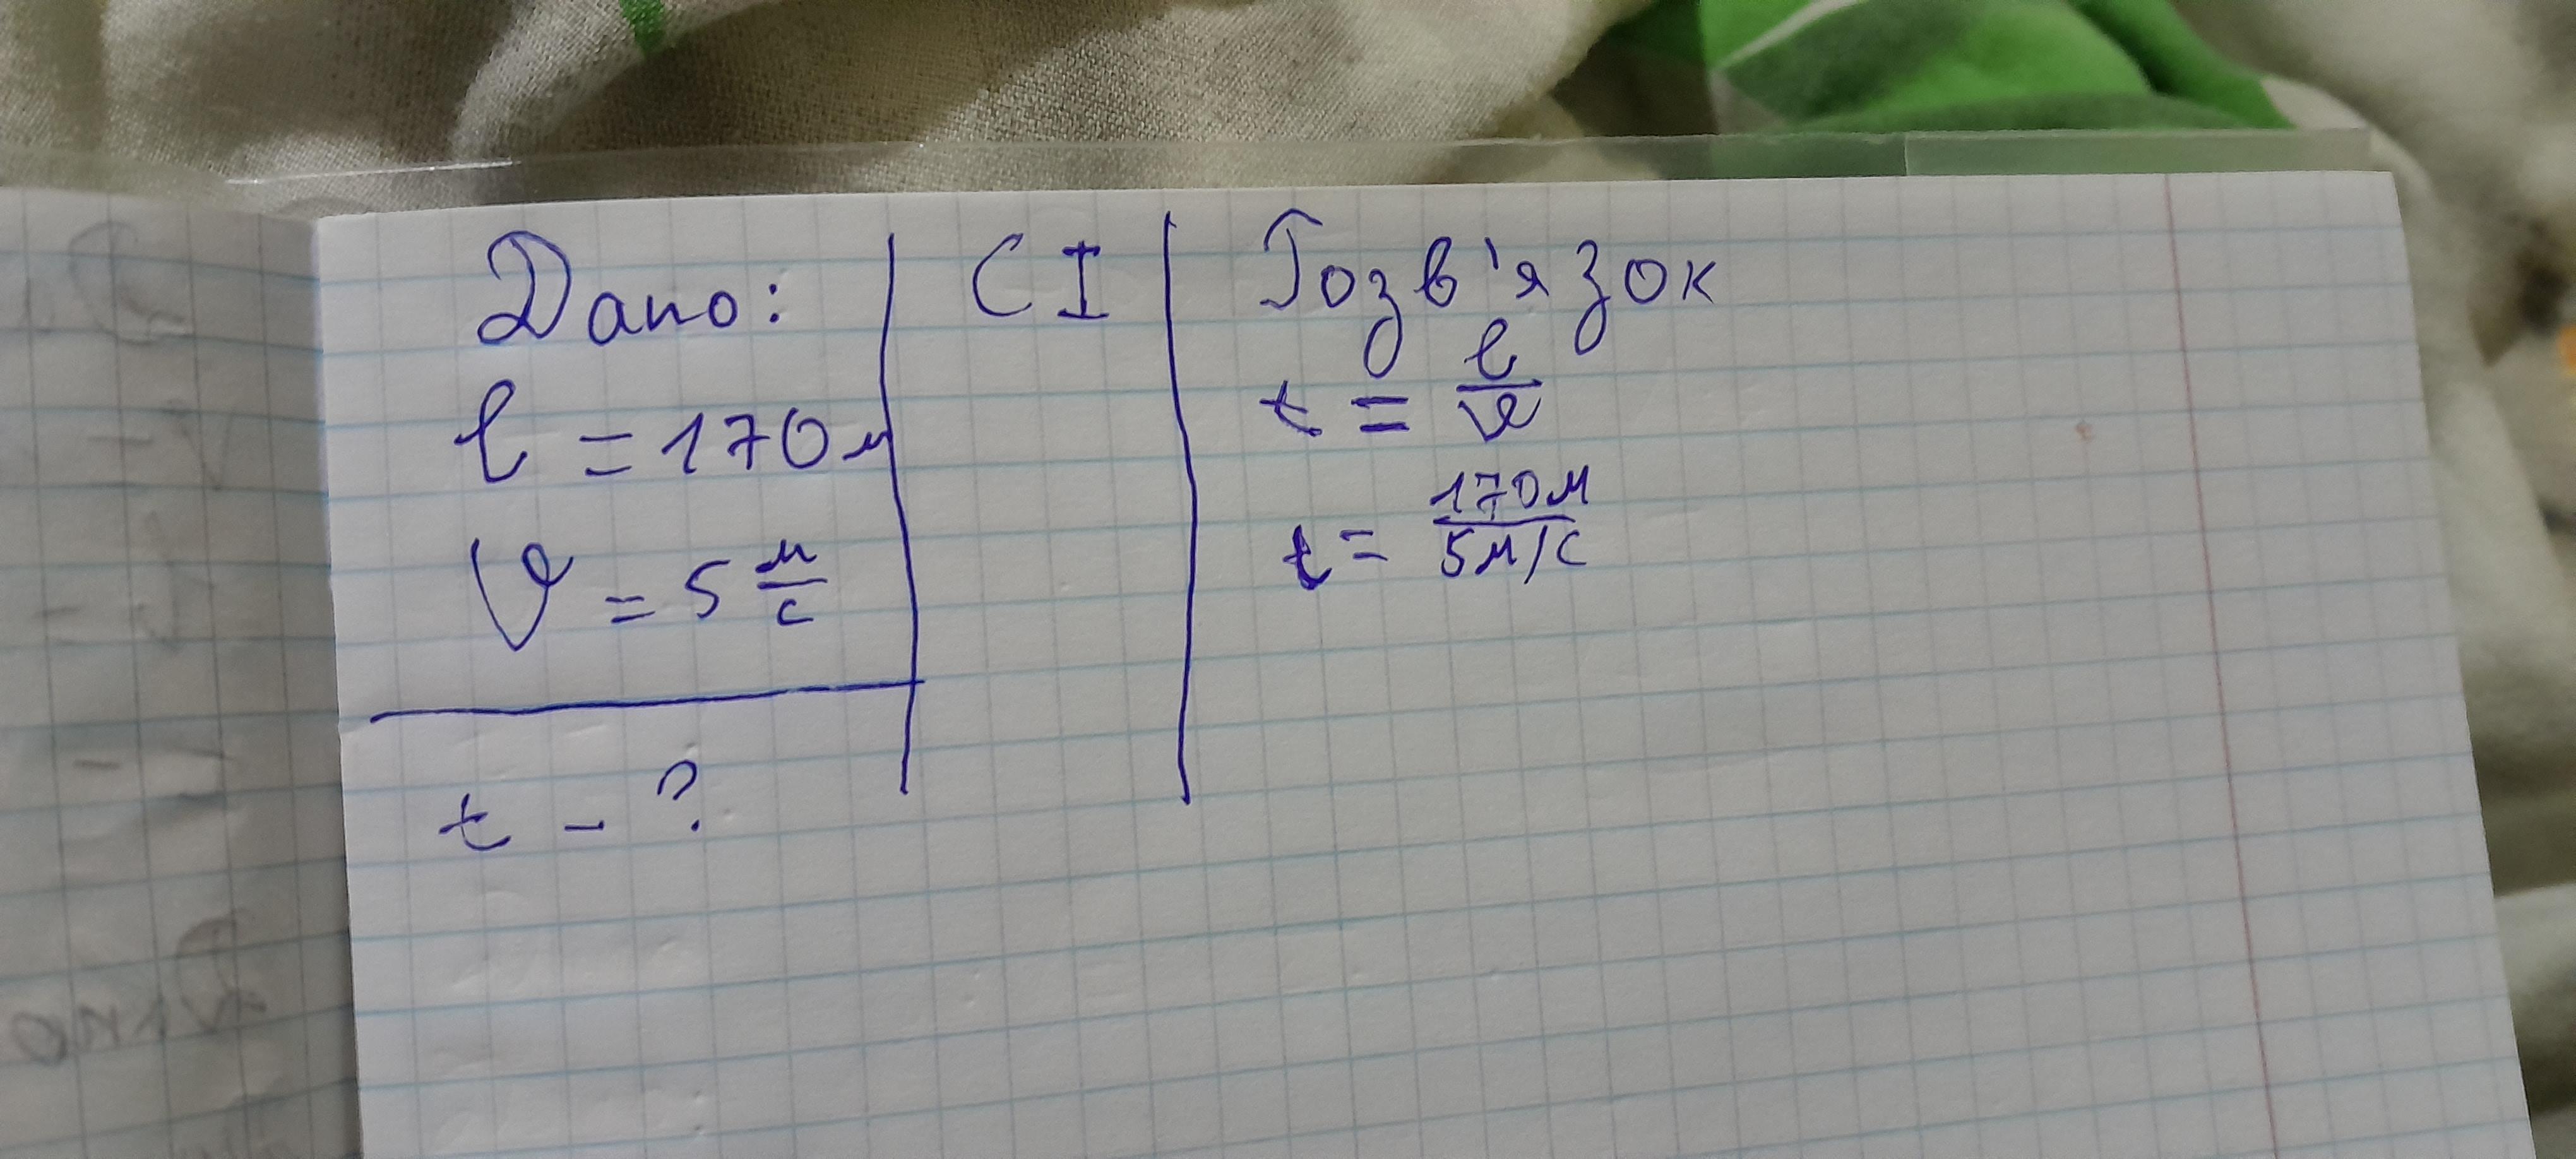 Дано:
l = 170 м
V = 5 м/с
t - ?
СІ
Розв'язок
t = l/V
t = 170м/5м/с